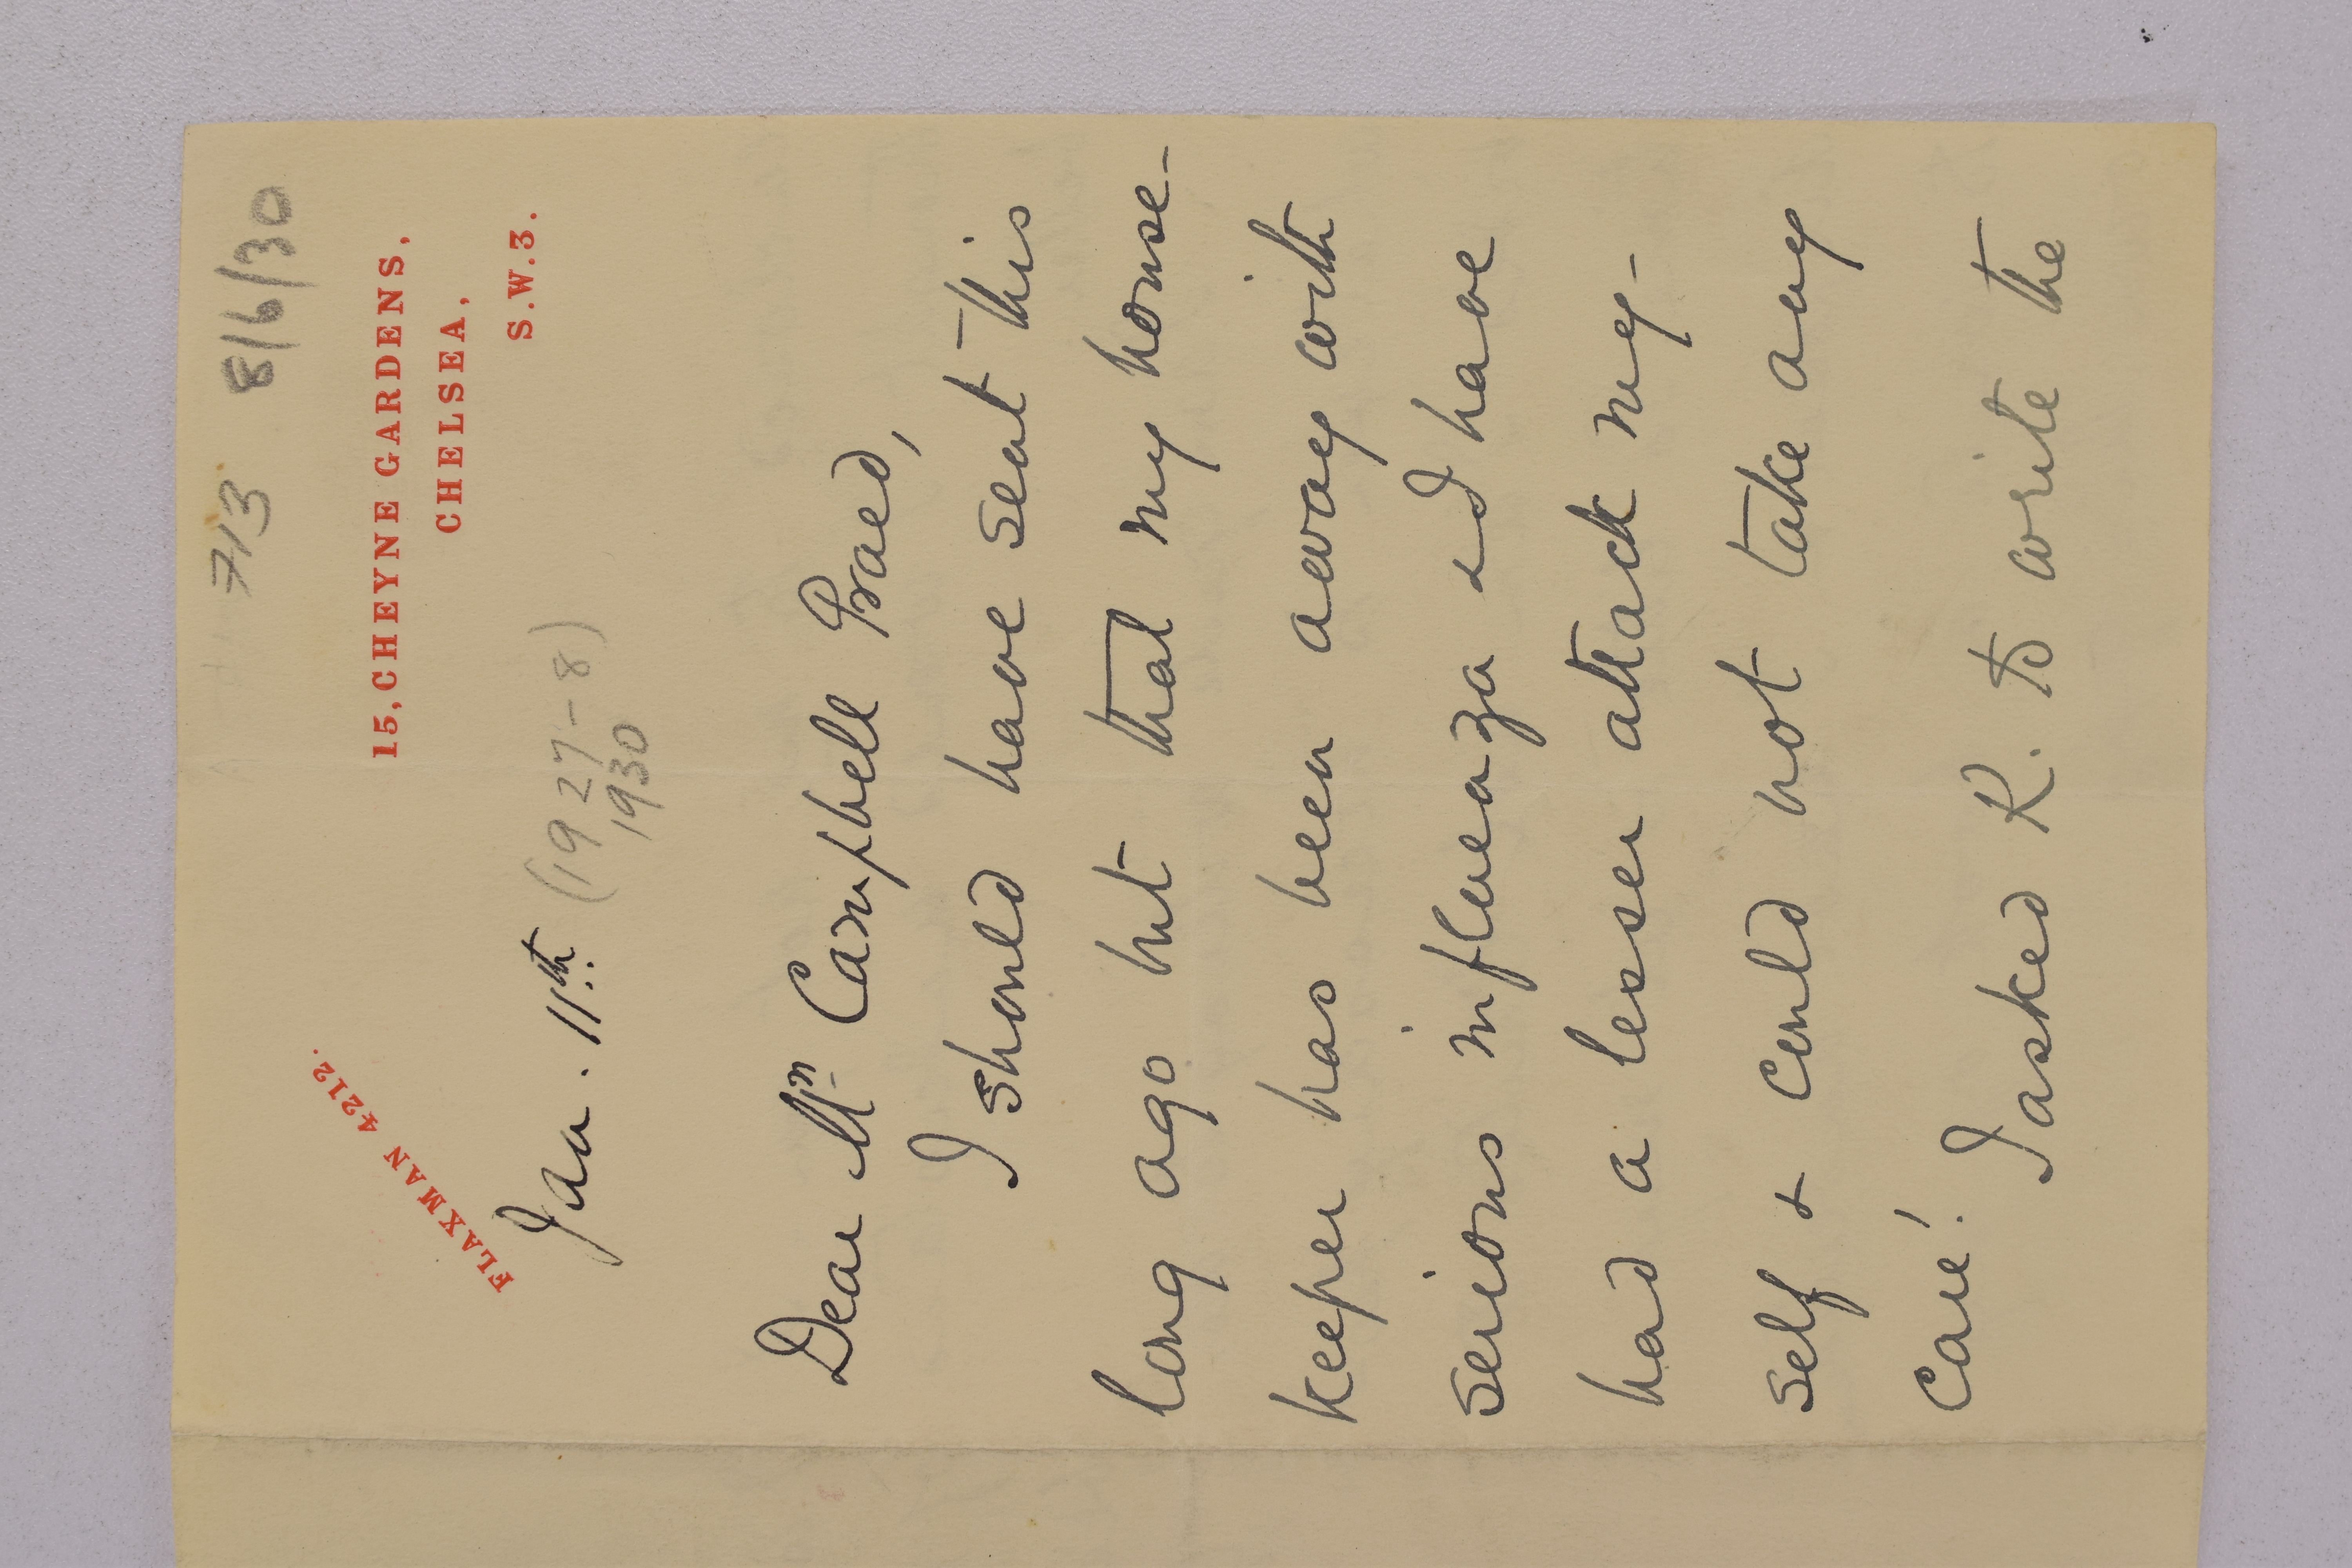 713 8/6/30
15, CHEYNE GARDENS,
CHELSEA,
S.W.3.
FLAXMAN 4212.
Jan. 11th. (1927-8)
1930
Dear Mrs Campbell Praed,
I should have sent this
long ago but that my house-
keeper has been away with
serious influenza & I have
had a lesser attack my-
self & could not take any
care! I asked R. to write the